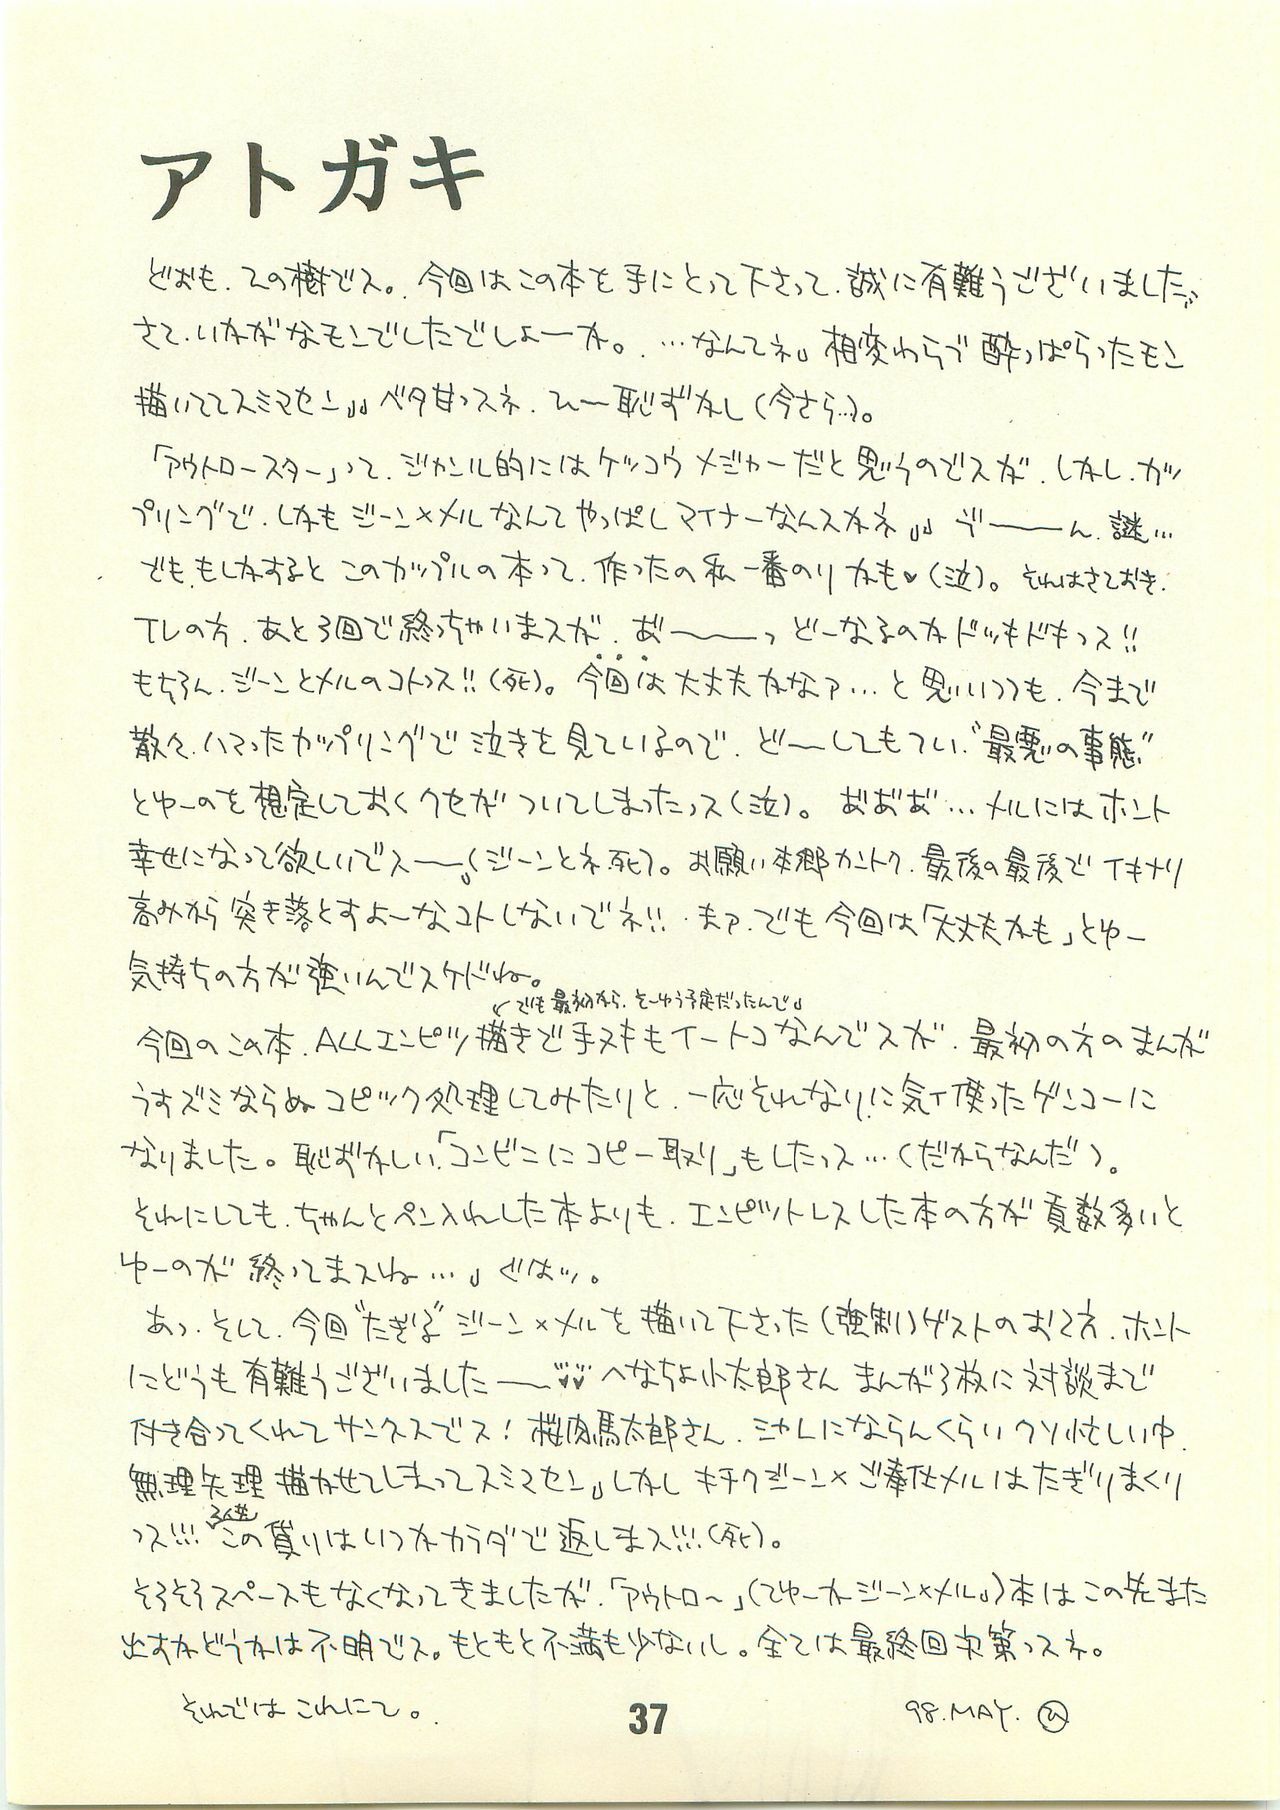 アトガキ
どおも、ひの樹でス。今回はこの本を手にとって下さって、誠に有難うございました。
さて、いかがなモンでしたでしょーか。…なんてネ」相変わらず酔っぱらったモン
描いててスミマセン」」ベタ甘っスネ、ひー恥ずかし(今さら…)。
「アウトロースター」って、ジャンル的にはケッコウメジャーだと思うのでスが、しかし、カッ
プリングで、しかもジーン×メルなんてやっぱしマイナーなんスかネ」」ゔーーーん、謎…
でも、もしかするとこのカップルの本って、作ったの私一番のりかも♥(泣)。それはさておき、
TVの方、あと3回で終っちゃいまスが、おーーーっどーなるのかドッキドキっス!!
もちろん、ジーンとメルのコトっス!!(死)。今回は大丈夫かなァ…と思いつつも、今まで
散々、ハマったカップリングで泣きを見ているので、どーしてもてい、〝最悪の事態〟
とゆーのを想定しておくクセがついてしまったっス(泣)。おおお…メルにはホント
幸せになって欲しいでスー」(ジーンとネ、死)。お願い本郷カントク、最後の最後でイキナリ
高みから突き落とすよーなコトしないでネ!!まァ、でも今回は「大丈夫かも」とゆー
気持ちの方が強いんでスケドね。
↙でも最初から、そーゆう予定だったんで」
今回のこの本、ALLエンピツ描きで手ヌキもイートコなんでスが、最初の方のまんが
うすズミならぬコピック処理してみたりと、一応それなりに気イ使ったゲンコーに
なりました。恥ずかしい「コンビニにコピー取り」もしたっス…(だからなんだ)。
それにしても、ちゃんとペン入れした本よりも、エンピツトレスした本の方が頁数多いと
ゆーのが終ってまスね…」ぐはッ。
あっ、そして、今回〝たぎる〟ジーン×メルを描いて下さった(強制)ゲストのお2方、ホント
にどうも有難うございましたー♥♥へなちょ小太郎さんまんが3枚に対談まで
付き合ってくれてサンクスでス!桜肉馬太郎さん、シャレにならんくらいクソ忙しい中、
無理矢理描かせてしまってスミマセン」しかしキチクジーン×ご奉仕メルはたぎりまくり
っス!!!この貸りはいつかカラダで返しまス!!!(死)。
そろそろスペースもなくなってきましたが、「アウトロ〜」(てゆーかジーン×メル」)本はこの先また
出すかどうかは不明でス。もともと不満も少ないし。全ては最終回次第っスネ。
それでは これにて。
98.MAY. ひ
37